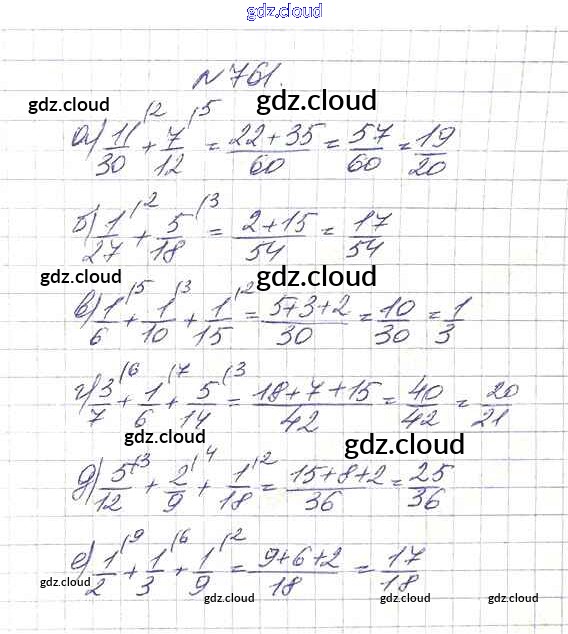 gdz.cloud
gdz.cloud
№ 761.
gdz.cloud gdz.cloud
а) 11/30 \2 + 7/12 \5 = 22+35/60 = 57/60 = 19/20
gdz.cloud
б) 1/27 \2 + 5/18 \3 = 2+15/54 = 17/54
gdz.cloud gdz.cloud
в) 1/6 \5 + 1/10 \3 + 1/15 \2 = 5+3+2/30 = 10/30 = 1/3
gdz.cloud
г) 3/7 \6 + 1/6 \7 + 5/14 \3 = 18+7+15/42 = 40/42 = 20/21
gdz.cloud gdz.cloud
д) 5/12 \3 + 2/9 \4 + 1/18 \2 = 15+8+2/36 = 25/36
е) 1/2 \9 + 1/3 \6 + 1/9 \2 = 9+6+2/18 = 17/18
gdz.cloud gdz.cloud gdz.cloud gdz.cloud